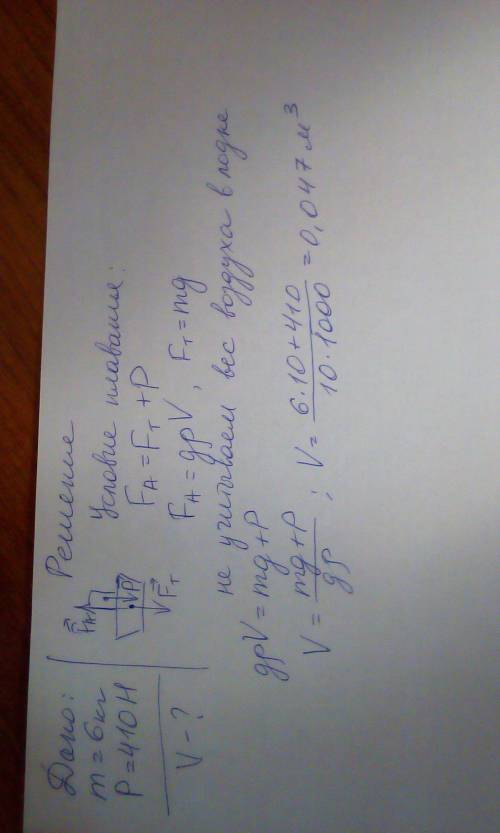 Дано:
m = 6 кг
P = 410 Н
V - ?
Решение
F⃗A
P⃗
F⃗т
Условие плавания:
FA = Fт + P
FA = gρV, Fт = mg
не учитываем вес воздуха в лодке
gρV = mg + P
V = (mg + P)/(gρ); V = (6·10 + 410)/(10·1000) = 0,047 м³